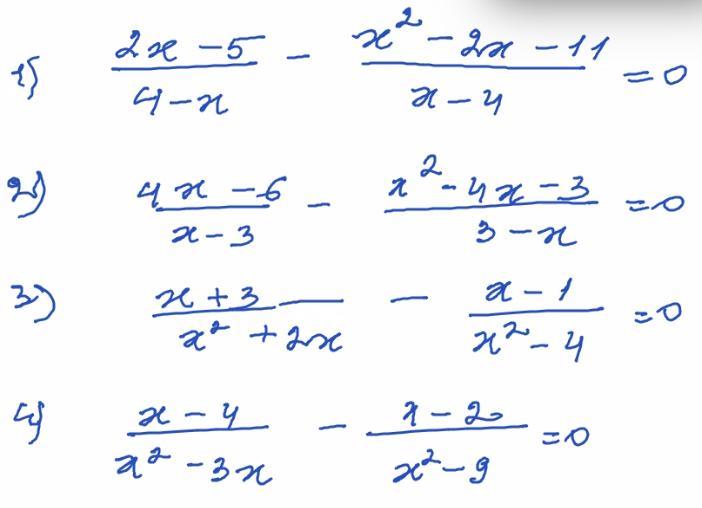 1) (2x - 5)/(4 - x) - (x² - 2x - 11)/(x - 4) = 0
2) (4x - 6)/(x - 3) - (x² - 4x - 3)/(3 - x) = 0
3) (x + 3)/(x² + 2x) - (x - 1)/(x² - 4) = 0
4) (x - 4)/(x² - 3x) - (x - 2)/(x² - 9) = 0